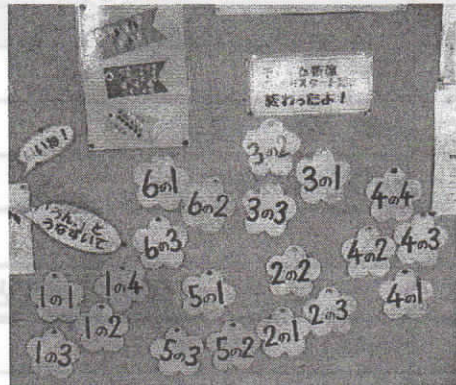 終わったよ！
いいね！
うん、と
うなずいて
3の2
3の1
6の1
6の2
3の3
4の4
6の3
4の2
4の3
2の2
1の1
1の4
5の1
4の1
1の2
2の3
2の1
1の3
5の3
5の2